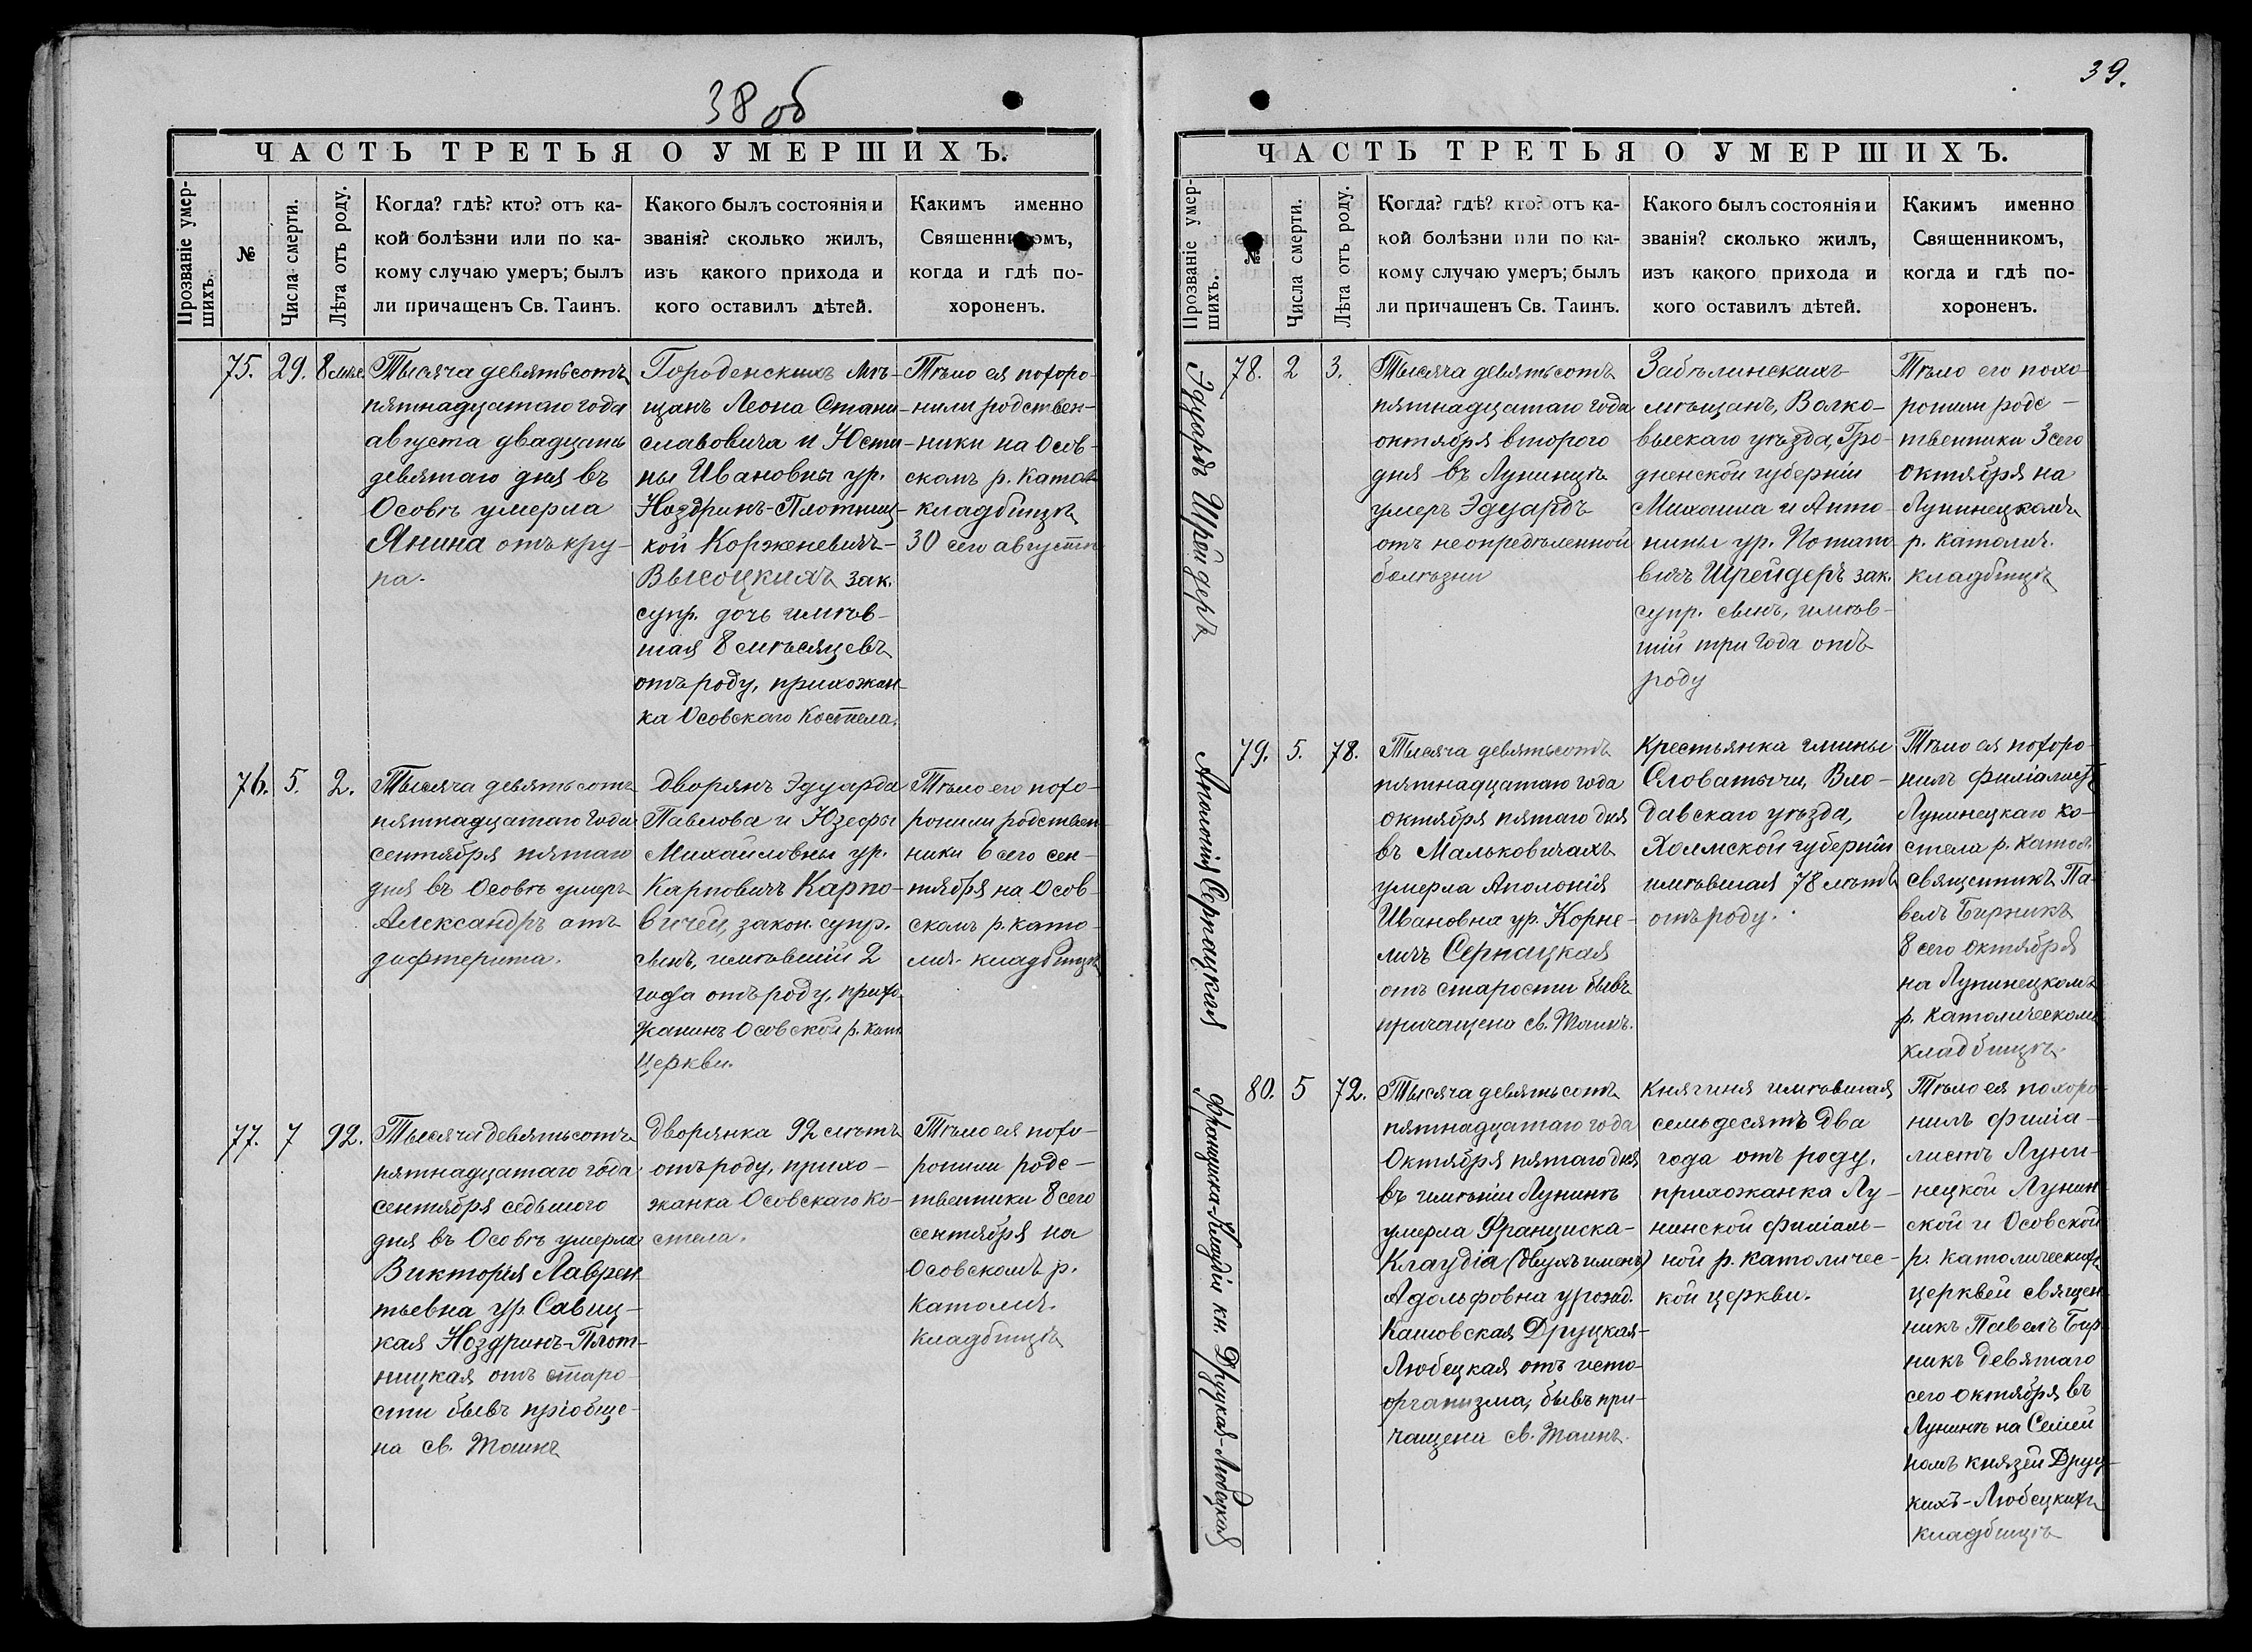 38 об
ЧАСТЬ ТРЕТЬЯ О УМЕРШИХЪ.
Прозваніе умер-
шихъ.
№
Числа смерти.
Лѣта отъ роду.
Когда? гдѣ? кто? отъ ка-
кой болѣзни или по ка-
кому случаю умеръ; былъ
ли причащенъ Св. Таинъ.
Какого былъ состоянія и
званія? сколько жилъ,
изъ какого прихода и
кого оставилъ дѣтей.
Какимъ именно
Священникомъ,
когда и гдѣ по-
хороненъ.
75.
29.
8 мѣс.
Тысяча девятьсотъ
пятнадцатаго года
августа двадцать
девятаго дня въ
Осовѣ умерла
Янина отъ кру-
па.
Городенскихъ мѣ-
щанъ Леона Стани-
славовича и Юсти-
ны Ивановны ур.
Ноздринъ-Плотниц-
кой Корженевичъ-
Высоцкихъ зак.
супр. дочь имѣв-
шая 8 мѣсяцевъ
отъ роду, прихожан-
ка Осовскаго Костела.
Тѣло ея похоро-
нили родствен-
ники на Осов-
скомъ р. катол.
кладбищѣ
30 сего августа
76.
5.
2.
Тысяча девятьсотъ
пятнадцатаго года
сентября пятаго
дня въ Осовѣ умеръ
Александръ отъ
дифтерита.
дворянъ Эдуарда
Павлова и Юзефы
Михайловны ур.
Карповичъ Карпо-
вичей, закон. супр.
сынъ, имѣвшій 2
года отъ роду, прихо-
жанинъ Осовской р. кат.
Церкви.
Тѣло его похо-
ронили родствен-
ники 6 сего сен-
тября на Осов-
скомъ р. като-
лич. кладбищѣ
77.
7
92.
Тысяча девятьсотъ
пятнадцатаго года
сентября седьмого
дня въ Осовѣ умерла
Викторія Лаврен-
тьевна ур. Савиц-
кая Ноздринъ-Плот-
ницкая отъ старо-
сти бывъ пріобще-
на св. Таинъ
Дворянка 92 лѣтъ
отъ роду, прихо-
жанка Осовскаго Ко-
стела.
Тѣло ея похо-
ронили родс-
твенники 8 сего
сентября на
Осовскомъ р.
католич.
кладбищѣ
39.
ЧАСТЬ ТРЕТЬЯ О УМЕРШИХЪ.
Прозваніе умер-
шихъ.
№
Числа смерти.
Лѣта отъ роду.
Когда? гдѣ? кто? отъ ка-
кой болѣзни или по ка-
кому случаю умеръ; былъ
ли причащенъ Св. Таинъ.
Какого былъ состоянія и
званія? сколько жилъ,
изъ какого прихода и
кого оставилъ дѣтей.
Какимъ именно
Священникомъ,
когда и гдѣ по-
хороненъ.
Эдуардъ Шрейдеръ
78.
2
3.
Тысяча девятьсотъ
пятнадцатаго года
октября второго
дня въ Лунинцѣ
умеръ Эдуардъ
отъ неопредѣленной
болѣзни
Забѣлинскихъ
мѣщанъ, Волко-
выскаго уѣзда, Гро-
дненской губерніи
Михаила и Анто-
нины ур. Потапо-
вичъ Шрейдеръ зак.
супр. сынъ, имѣв-
шій три года отъ
роду
Тѣло его похо-
ронили родс-
твенники 3 сего
октября на
Лунинецкомъ
р. католич.
кладбищѣ
Аполонія Серпацкая
79.
5.
78.
Тысяча девятьсотъ
пятнадцатаго года
октября пятаго дня
въ Мальковичахъ
умерла Аполонія
Ивановна ур. Корне-
личъ Серпацкая
отъ старости бывъ
причащена св. Таинъ.
Крестьянка гмины
Словатычи, Вло-
давскаго уѣзда,
Холмской губерніи
имѣвшая 78 лѣтъ
отъ роду.
Тѣло ея похоро-
нилъ филіалистъ
Лунинецкаго ко-
стела р. катол.
священникъ Па-
велъ Бирникъ
8 сего октября
на Лунинецкомъ
р. католическомъ
кладбищѣ.
Францишка-Клаудія кн. Друцкая-Любецкая
80.
5
72.
Тысяча девятьсотъ
пятнадцатаго года
Октября пятаго дня
въ имѣніи Лунинѣ
умерла Франциска-
Клаудіа (двухъ именъ)
Адольфовна урожд.
Кашовская Друцкая-
Любецкая отъ исто-
организма, бывъ при-
чащена св. Таинъ.
Княгиня имѣвшая
семьдесятъ два
года отъ роду,
прихожанка Лу-
нинской филіаль-
ной р. католичес-
кой церкви.
Тѣло ея похоро-
нилъ филіа-
листъ Луни-
нецкой Лунин
ской и Осовской
р. католическихъ
церквей священ
никъ Павелъ Бир-
никъ девятаго
сего октября въ
Лунинѣ на Семей
номъ князей Друц-
кихъ-Любецкихъ
кладбищѣ